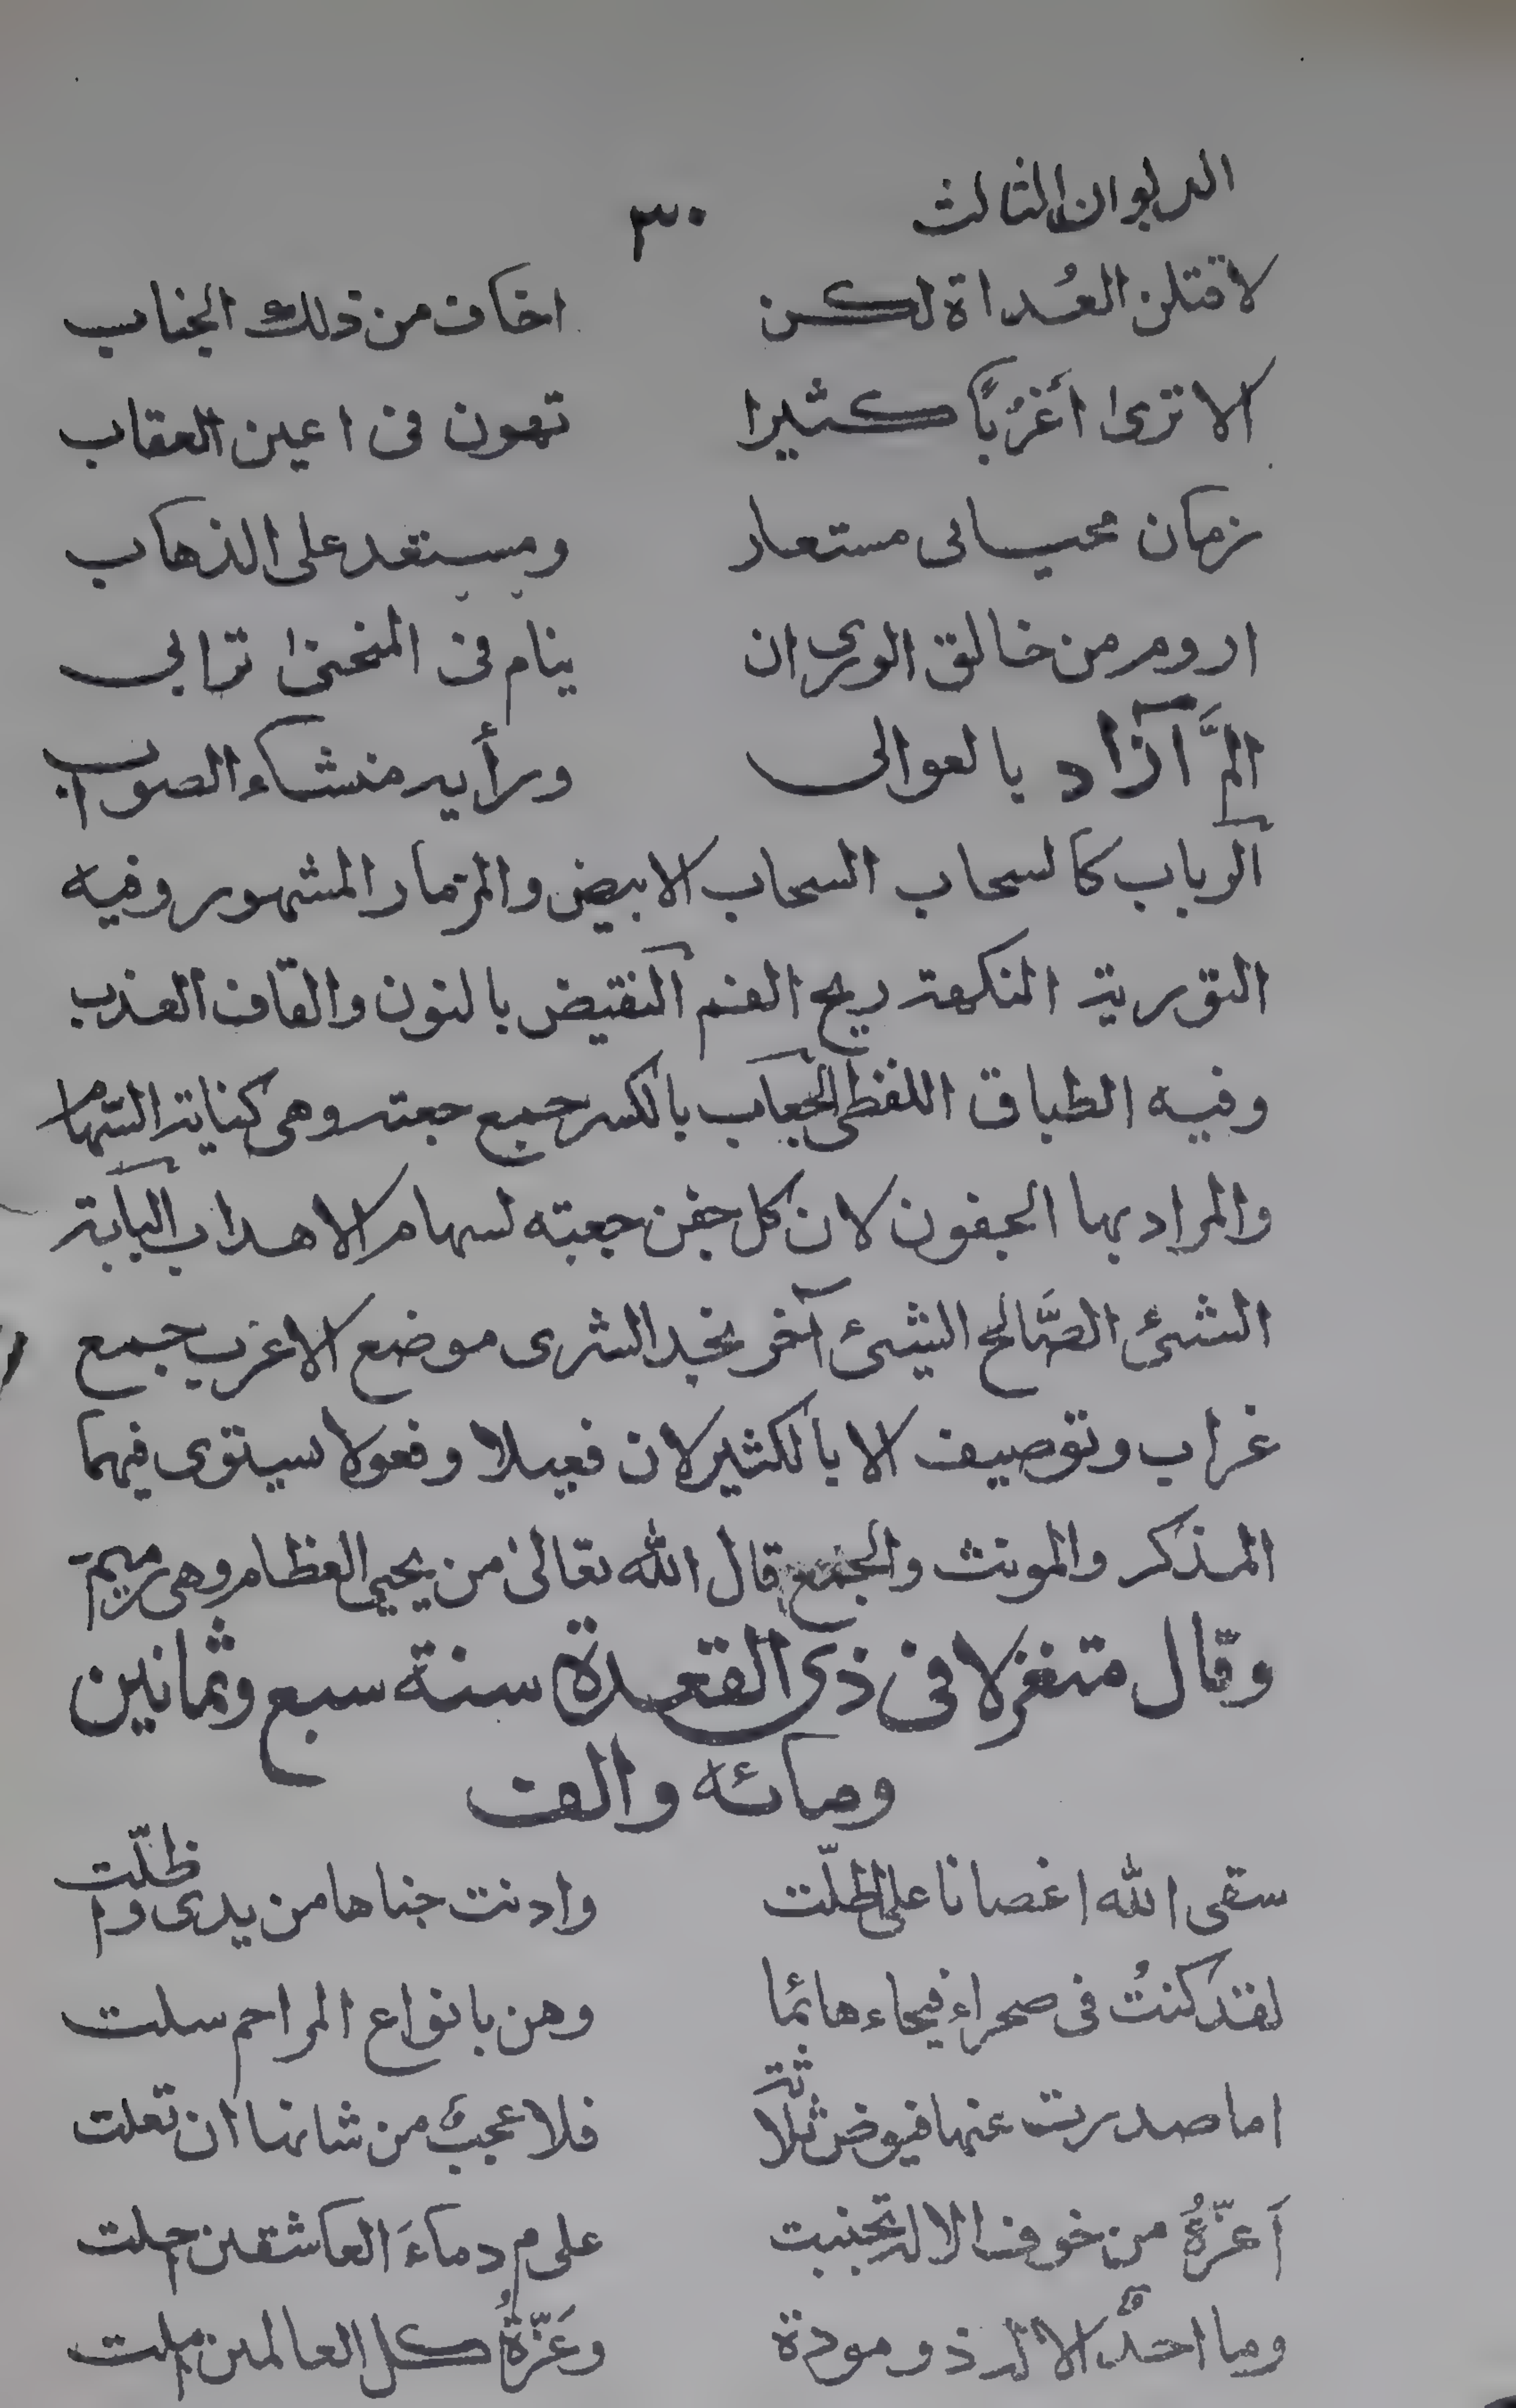 الديوان الثالث ٣٠
لاقتلن العُداة لكن اخاف من ذلك الجناب
الا ترى أَغرُبًا كثيرا تهون فى اعين العقاب
زمان محياى مستعار ومستعد على الذهاب
اروم من خالق الورى ان ينام فى المنحنى ترابى
المَّ آزاد بالعوالى ورأيه منشاء الصواب
الرباب كالسحاب السحاب الابيض والمزمار المشهور وفيه
التورية النكهة ريح الفم النقيض بالنون والقاف العذب
وفيه الطباق اللفظى الجعاب بالكسر جمع جعبة وهى كنانة السهام
والمراد بها الجفون لان كل جفن جعبته لسهام الاهداب البابة
الشئ الصَّالح الشئ آخر نجد الشرى موضع الاغرب جمع
غراب وتوصيف الا بالكثير لان فعيلا وفعولا سيتوى فيهما
المذكر والمونث والجمع قال الله تعالى من يحيى العظام وهى رميم
وقال متغزلا فى ذى القعدة سنة سبع وثمانين
ومائه والف
سقى الله اغصانا على اظلّت وادنت جناها من يدى واظلّت
لقد كنتُ فى صحراء فيحاء هائما وهن بانواع المراحم سلت
اما صدرت عنها فيوض ثلاثة فلا عجبٌ من شانها ان تعلت
أَعزّةُ من خوف الاله تجنبت على م دماءَ العاشقين احلت
وما احدٌ الا له ذو مودة وعَزّةُ كل العالمين املت